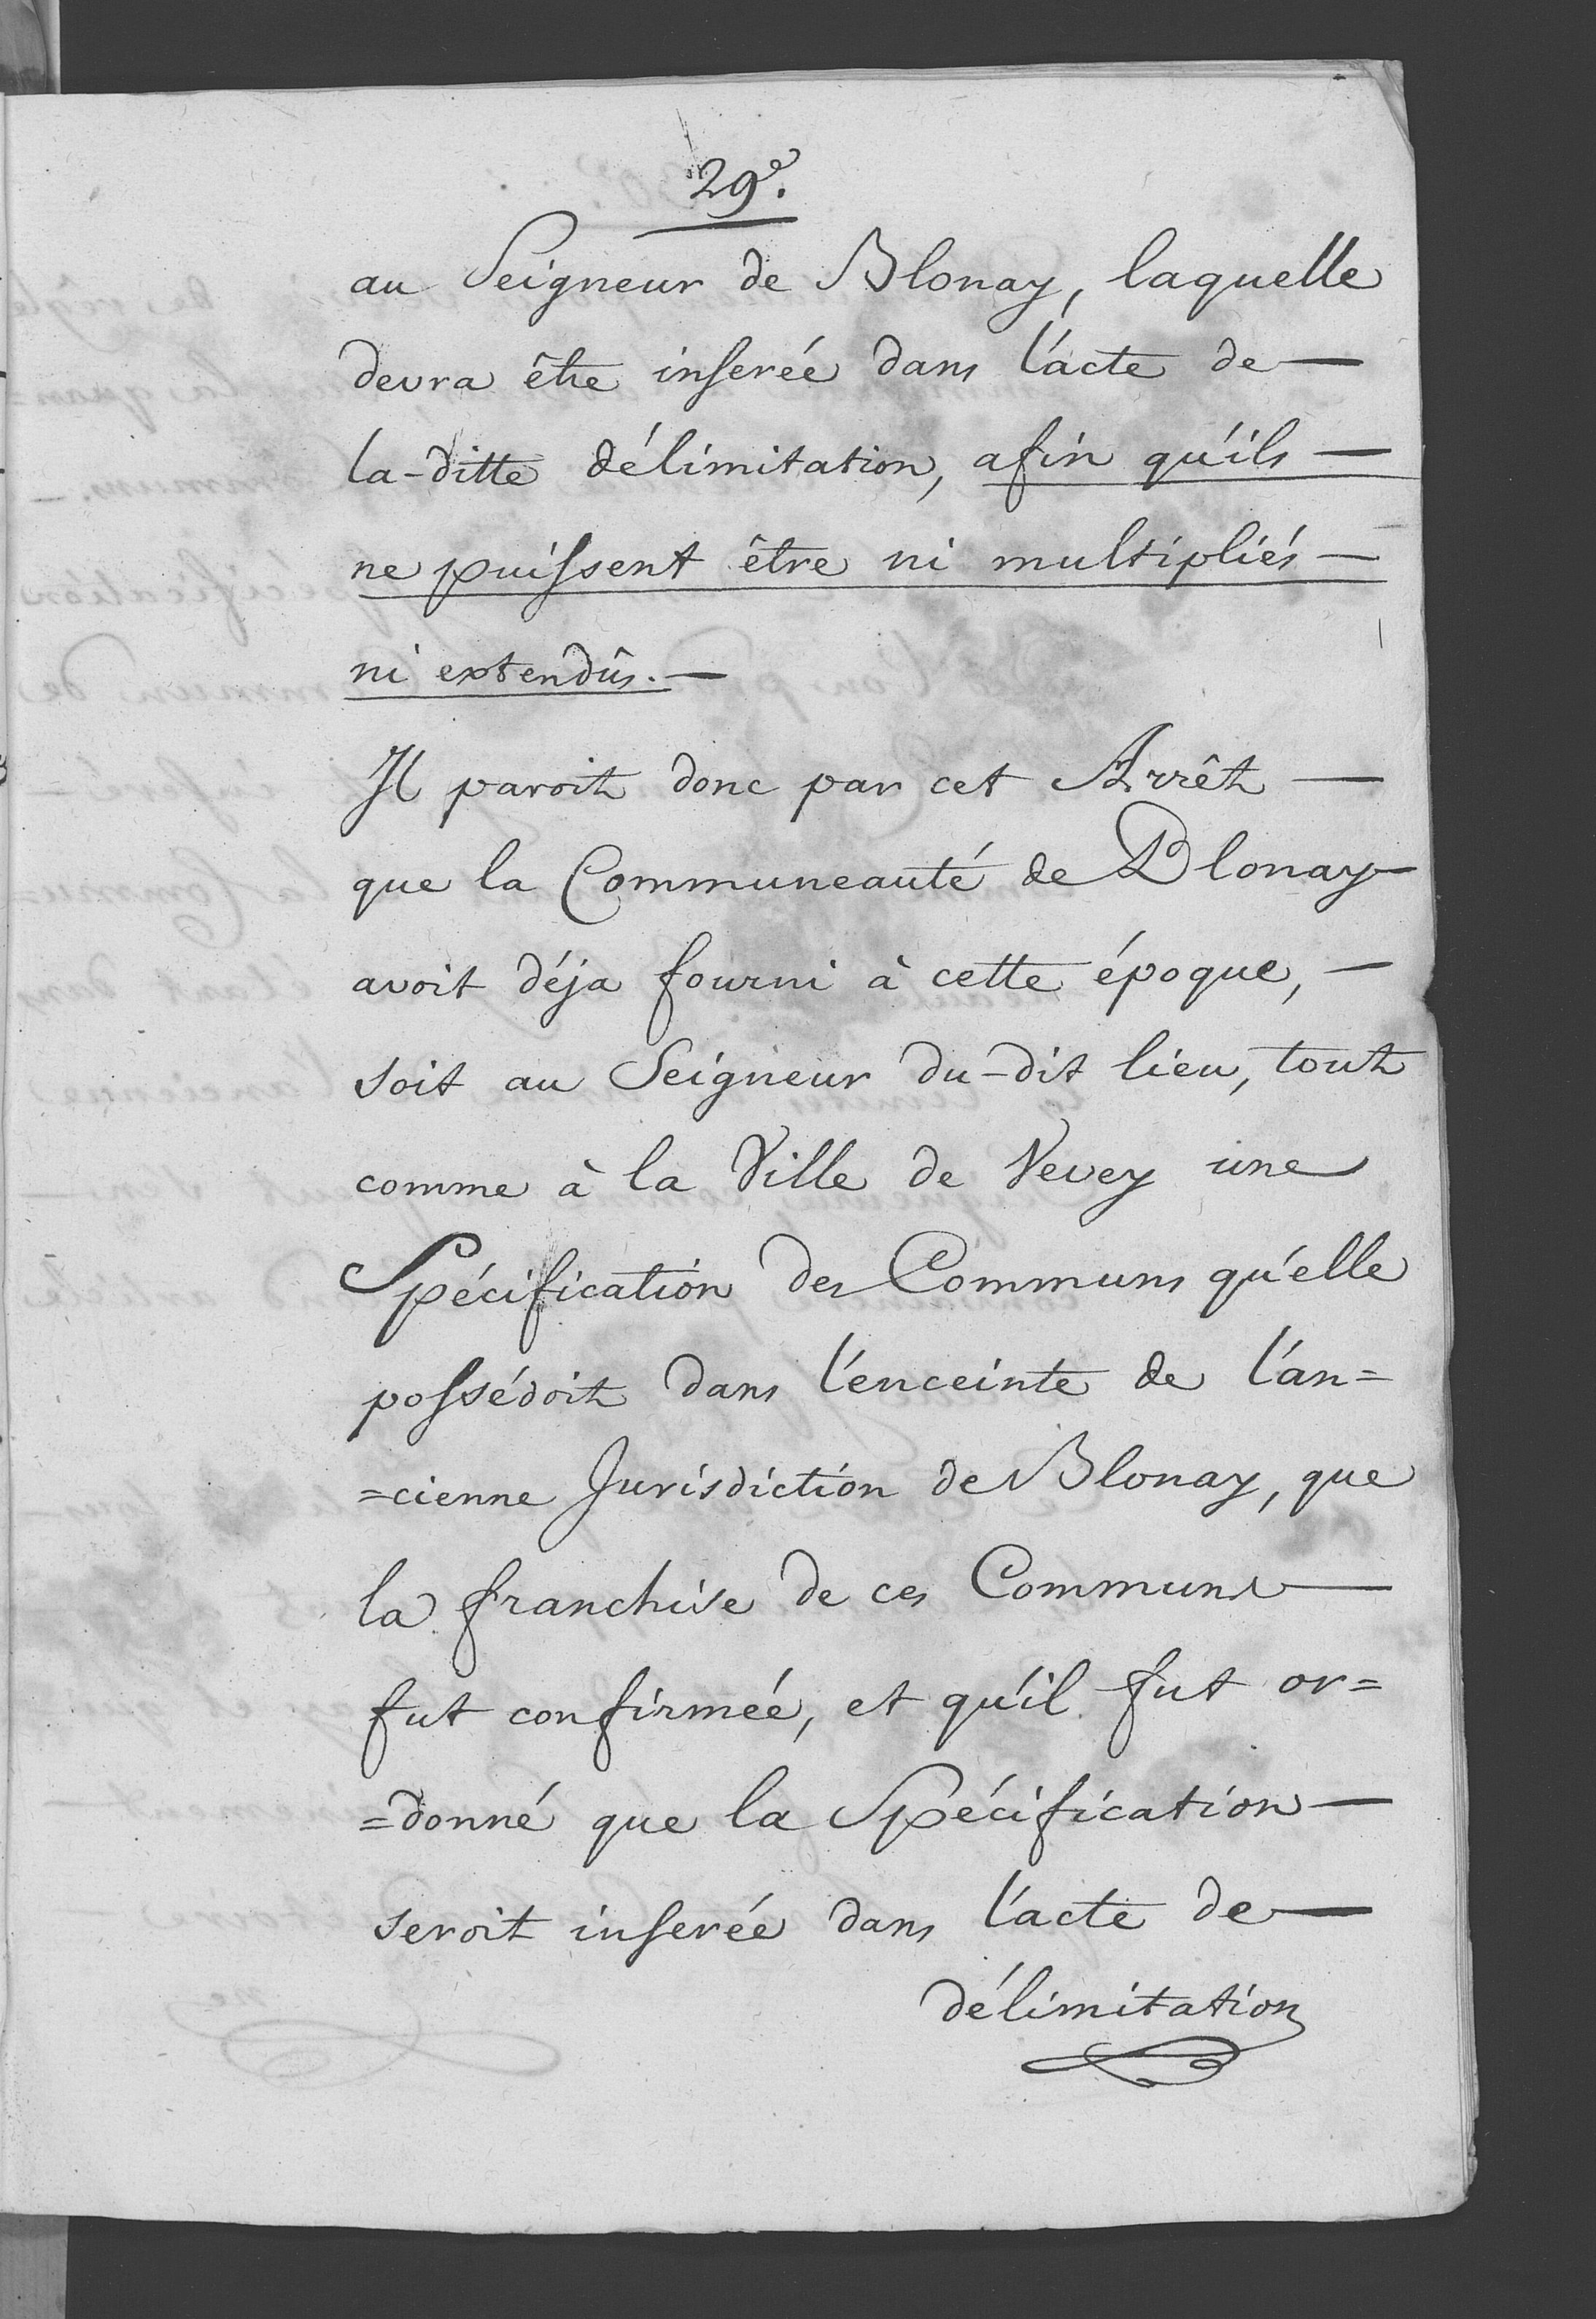 29e.
au Seigneur de Blonay, laquelle
devra être inserée dans l'acte de —
la-ditte délimitation, afin qu'ils —
ne puissent être ni multipliés —
ni extendûs. —
Il paroit donc par cet Arrêt —
que la Communeauté de Blonay —
avoit déja fourni à cette époque, —
soit au Seigneur du-dit lieu, tout
comme à la Ville de Vevey une
Spécification des Communs qu'elle
possédoit dans l'enceinte de l'an=
=cienne Jurisdiction de Blonay, que
la franchise de ces Communs —
fut confirmée, et qu'il fut or=
=donné que la Spécification —
seroit inserée dans l'acte de —
délimitation